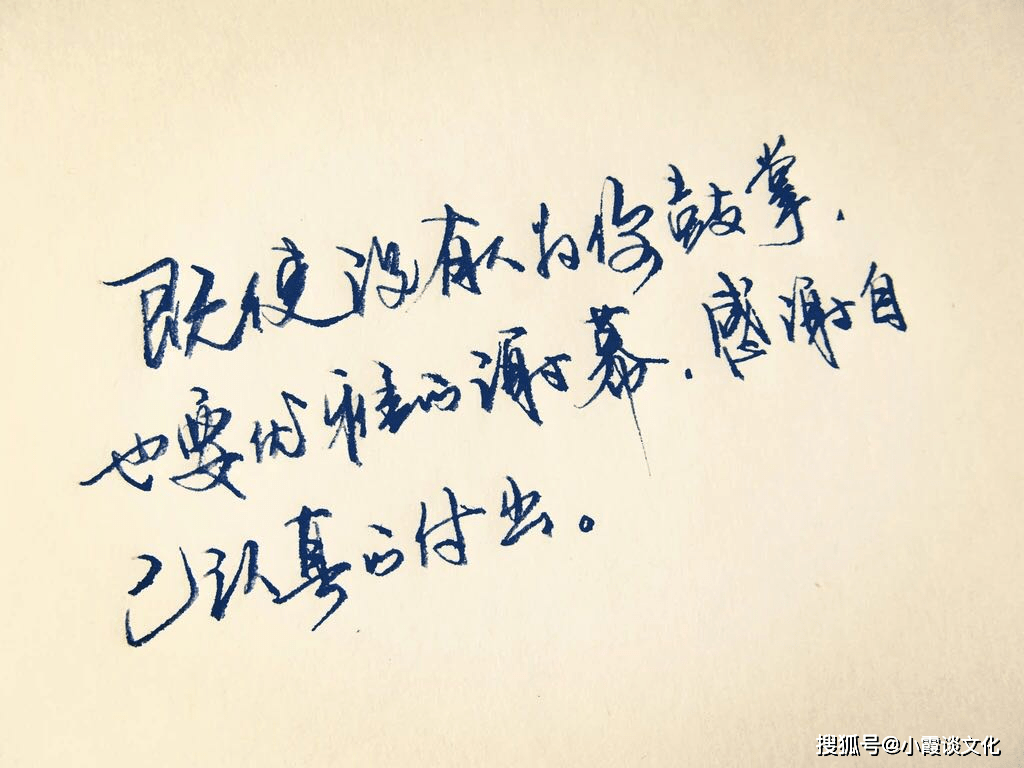 既使没有人为你鼓掌.
也要优雅的谢幕.感谢自
己认真的付出。
搜狐号@小霞谈文化